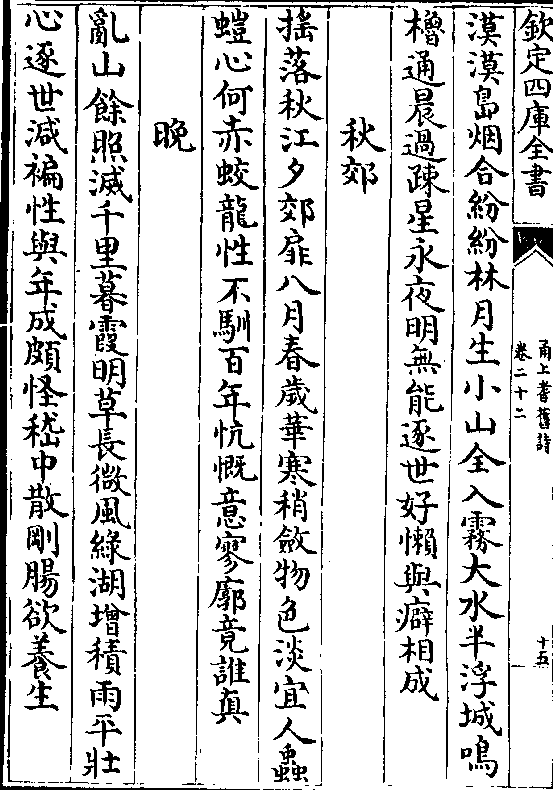 欽定四庫全書
甬上耆舊詩
卷二十二
十五
漠漠島烟合紛紛林月生小山全入霧大水半浮城鳴
櫓通晨過疎星永夜明無能逐世好懶與癖相成
秋郊
揺落秋江夕郊扉八月春歲華寒稍斂物色淡宜人蟲
螘心何赤蛟龍性不馴百年忼慨意寥廓竟誰真
晩
亂山餘照滅千里暮霞明草長微風綠湖増積雨平壯
心逐世減褊性與年成頗怪嵇中散剛腸欲養生